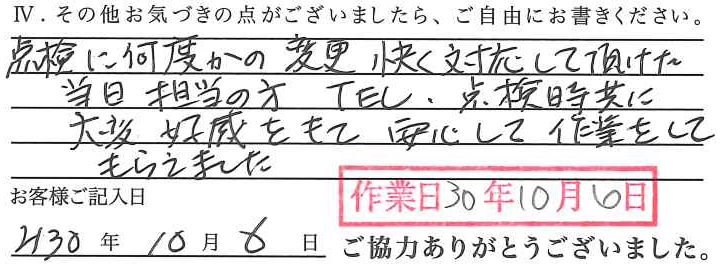 Ⅳ．その他お気づきの点がございましたら、ご自由にお書きください。
点検に何度かの変更 快く対応して頂けた
当日担当の方 TEL．点検時共に
大変好感をもて 安心して作業をして
もらえました
お客様ご記入日
作業日30年10月6日
H30年10月6日 ご協力ありがとうございました。